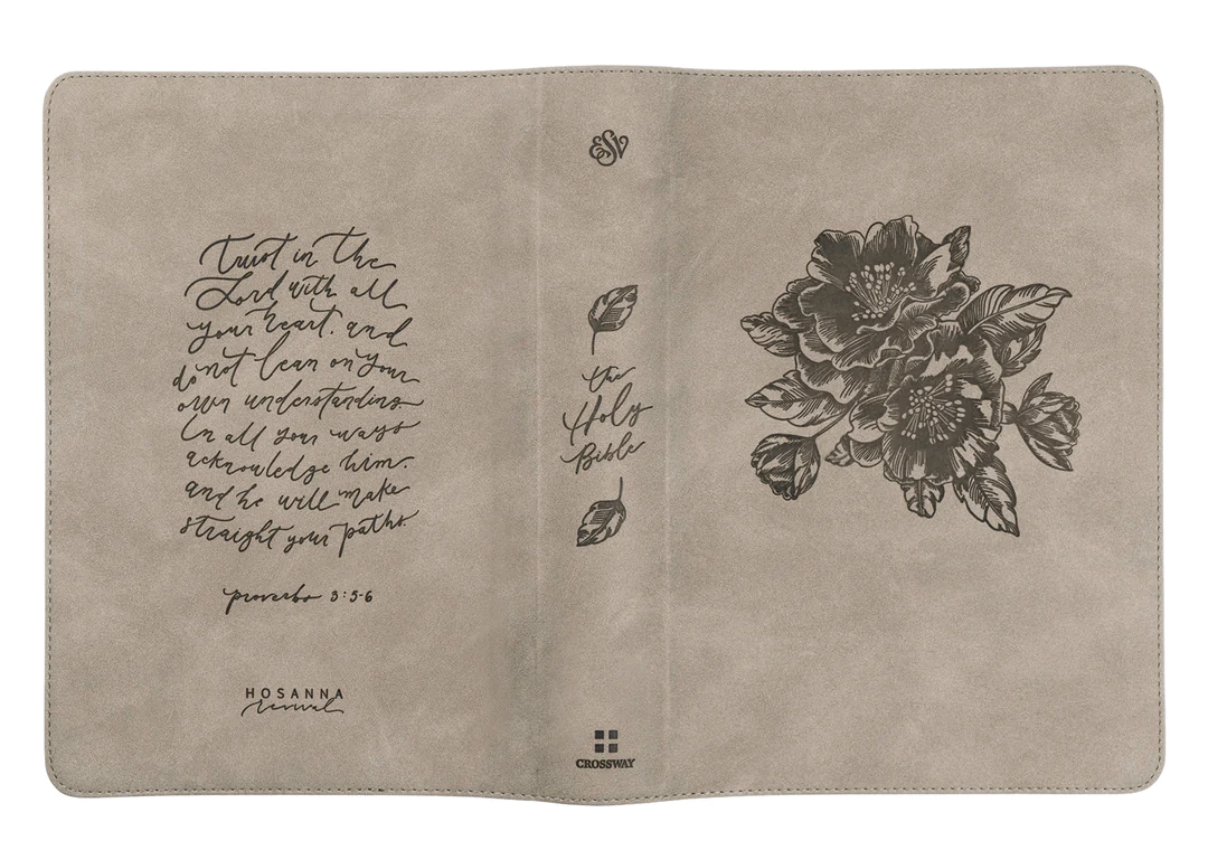 trust in the
Lord with all
your heart, and
do not lean on your
own understanding.
In all your ways
acknowledge him,
and he will make
straight your paths.
proverbs 3:5-6
HOSANNA
revival
ESV
the
Holy
Bible
CROSSWAY